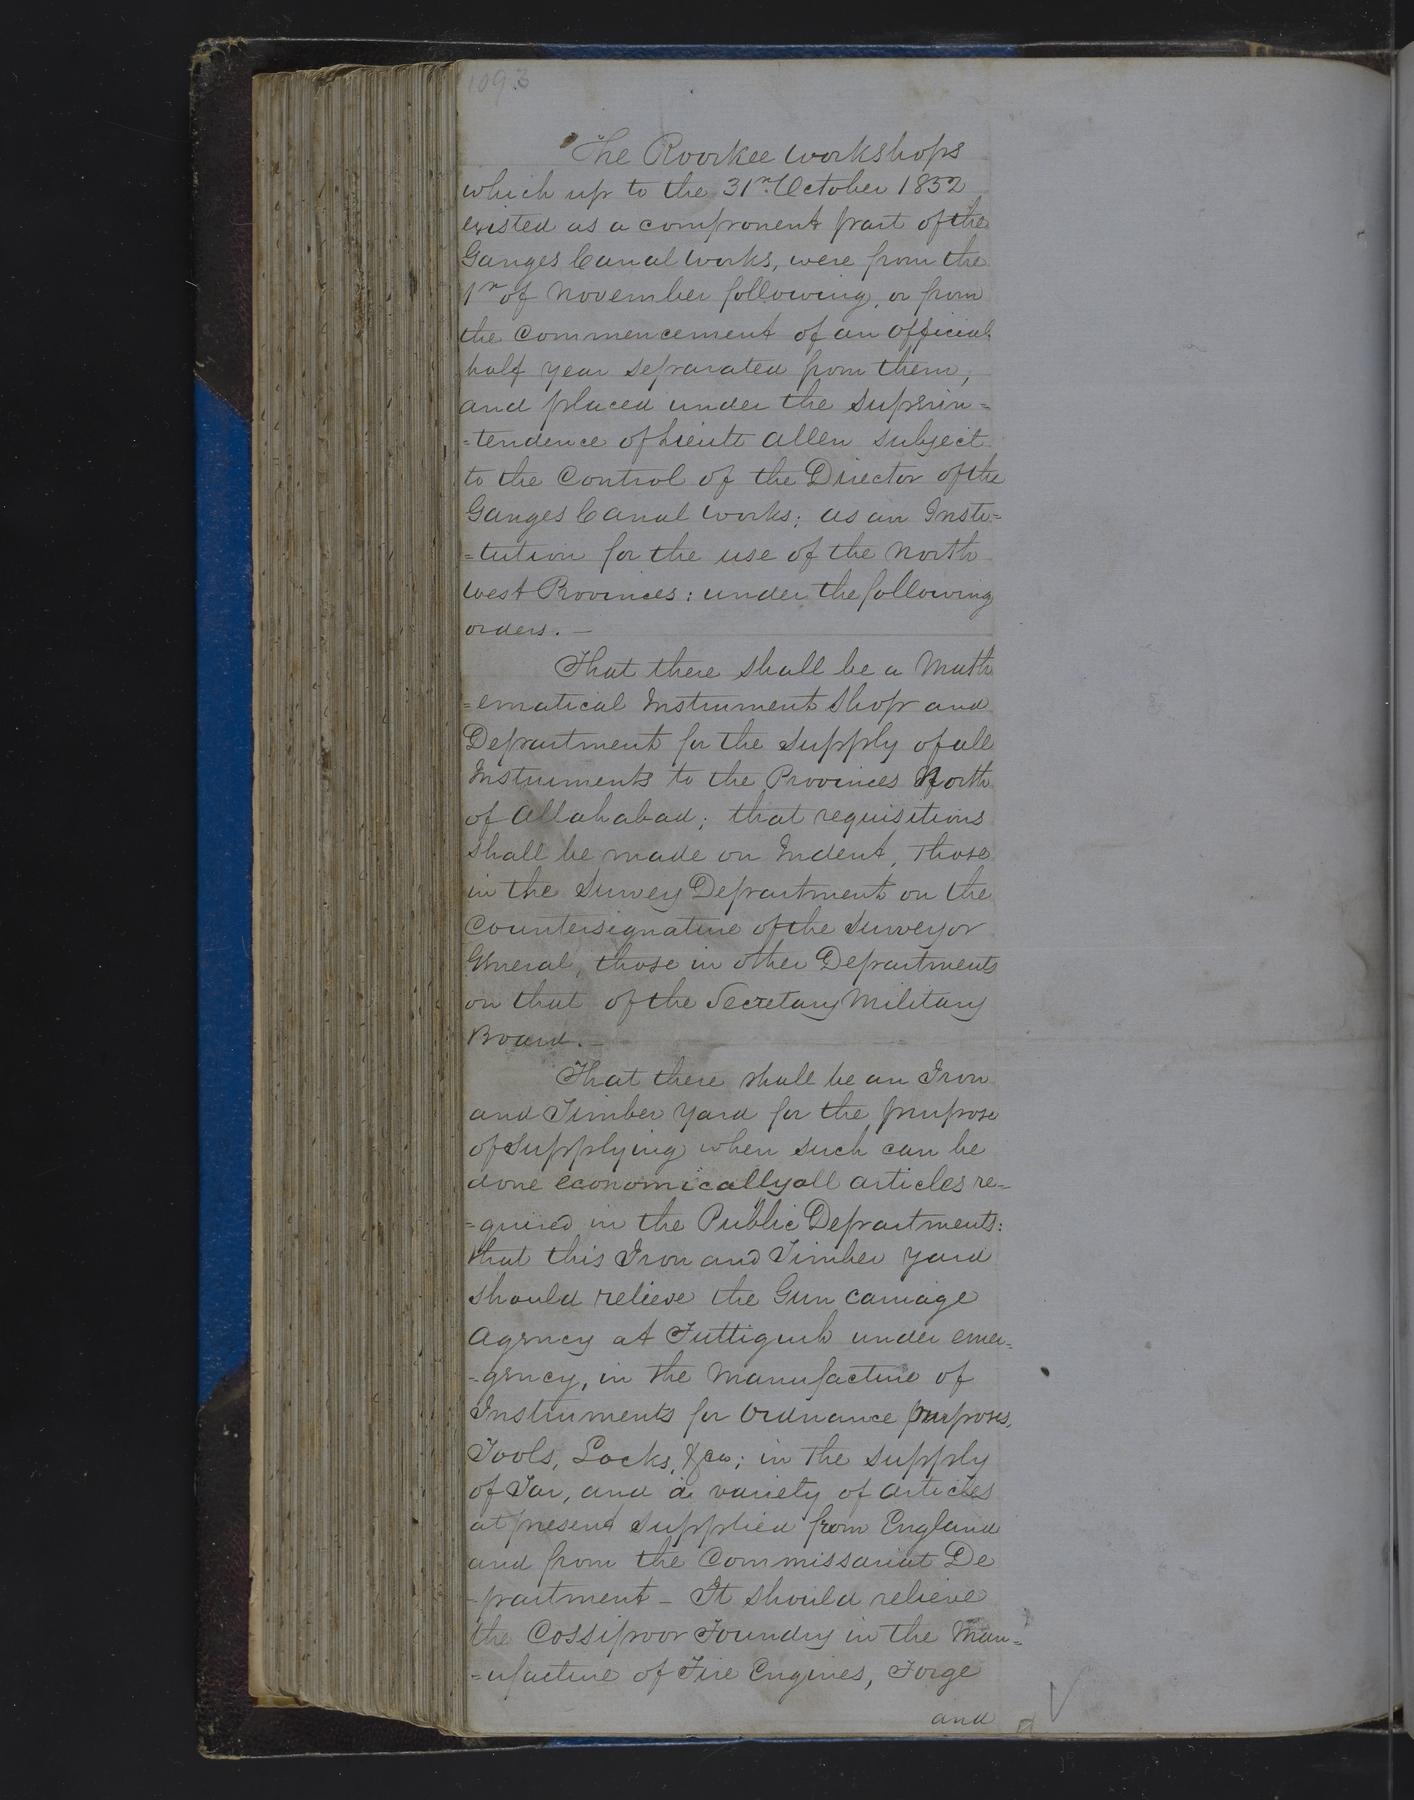 1093
The Roorkee workshops
which up to the 31st October 1852
existed as a component part of the
Ganges Canal works, were from the
1st of November following, or from
the Commencement of an official
half year separated from them,
and placed under the Superin=
=tendence of Lieutt Allen subject
to the Control of the Director of the
Ganges Canal works; as an Insti=
=tution for the use of the North
West Provinces: under the following
orders. —
That there shall be a Math
=ematical Instrument Shop and
Department for the supply of all
Instruments to the Provinces North
of Allahabad; that requisitions
shall be made on Indent, those
in the Survey Department on the
Countersignature of the Surveyor
General, those in other Departments
on that of the Secretary Military
Board. —
That there shall be an Iron
and Timber yard for the purpose
of supplying when such can be
done economically all articles re=
=quired in the Public Departments:
that this Iron and Timber yard
should relieve the Gun Carriage
Agency at Futtigurh under emer=
=gency, in the Manufacture of
Instruments for Ordnance purposes,
Tools, Locks, &ca; in the supply
of Tar, and a variety of articles
at present supplied from England
and from the Commissariat De
=partment – It should relieve
the Cossipoor Foundry in the Man=
=ufacture of Fire Engines, Forge
and